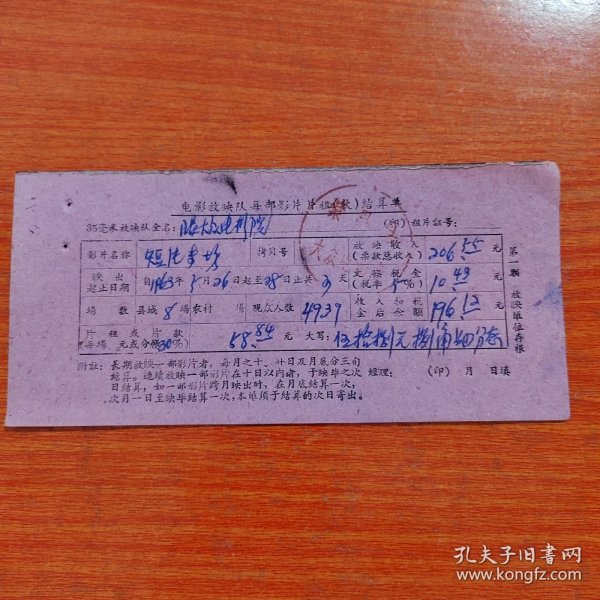 电影放映队每部影片片租(款)结算表
35毫米放映队全名: 大众电影院 (印) 租片证号:
影片名称 短片专场 拷贝号 放映收入(票款总收入) 206.55 元
映出起止日期 自1963年5月26日起至28日止共3天 文娱税金(税率5%) 10.43 元
场数 县城 8 场农村 场 观众人数 4939 收入扣税金后余额 196.12 元
片租或片款(每场 元或分帐30%) 58.84 元 大写: 伍拾捌元捌角四分
第一联 放映单位存根
附註: 长期放映一部影片者, 每月之十、廿日及月底分三旬
结算。连续放映一部影片在十日以内者, 于映毕之次 经理: (印) 月 日填
日结算, 如一部影片跨月映出时, 在月底结算一次,
次月一日至映毕结算一次, 本单须于结算的次日寄出。
孔夫子旧书网
www.kongfz.com